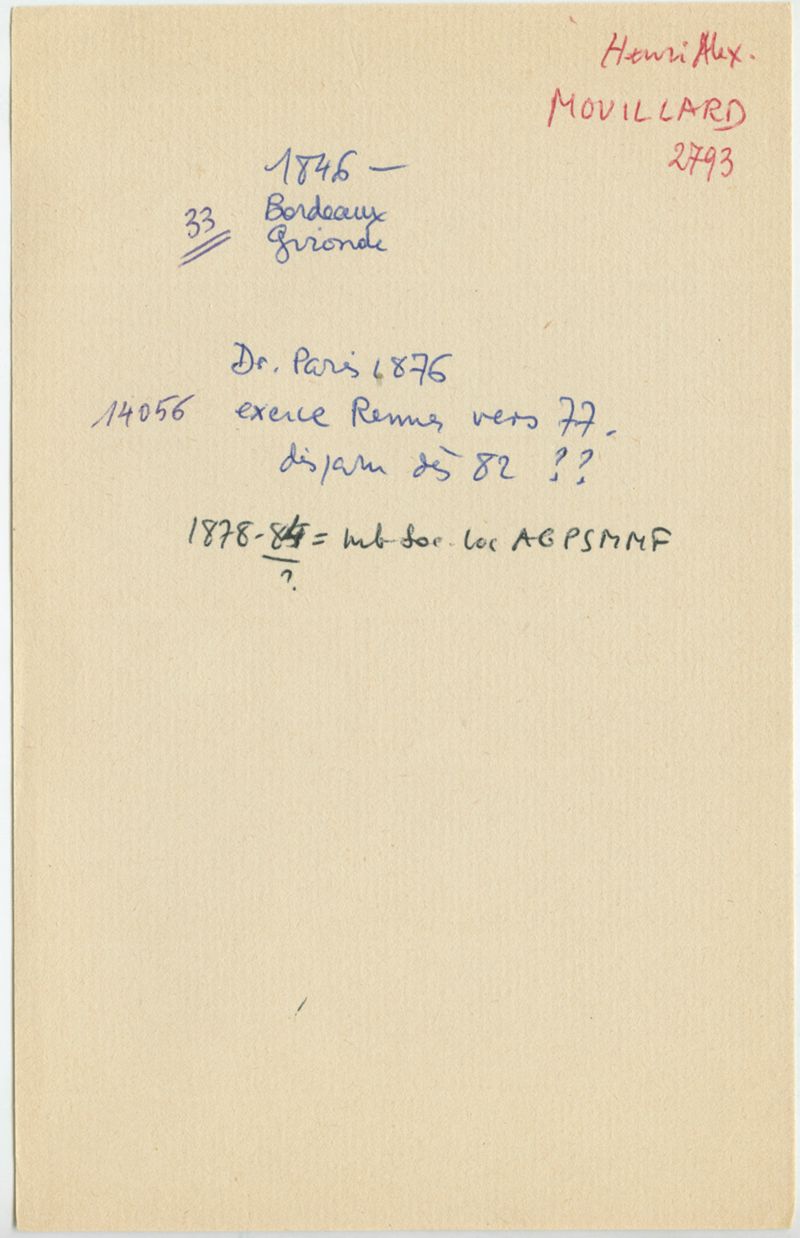 Henri Alex.
MOUILLARD
2793
1846 —
33 Bordeaux
Gironde
Dr. Paris 1876
14056 exerce Rennes vers 77.
disparu dès 82 ??
1878-84 = mb Soc. loc AGPSMMF
?